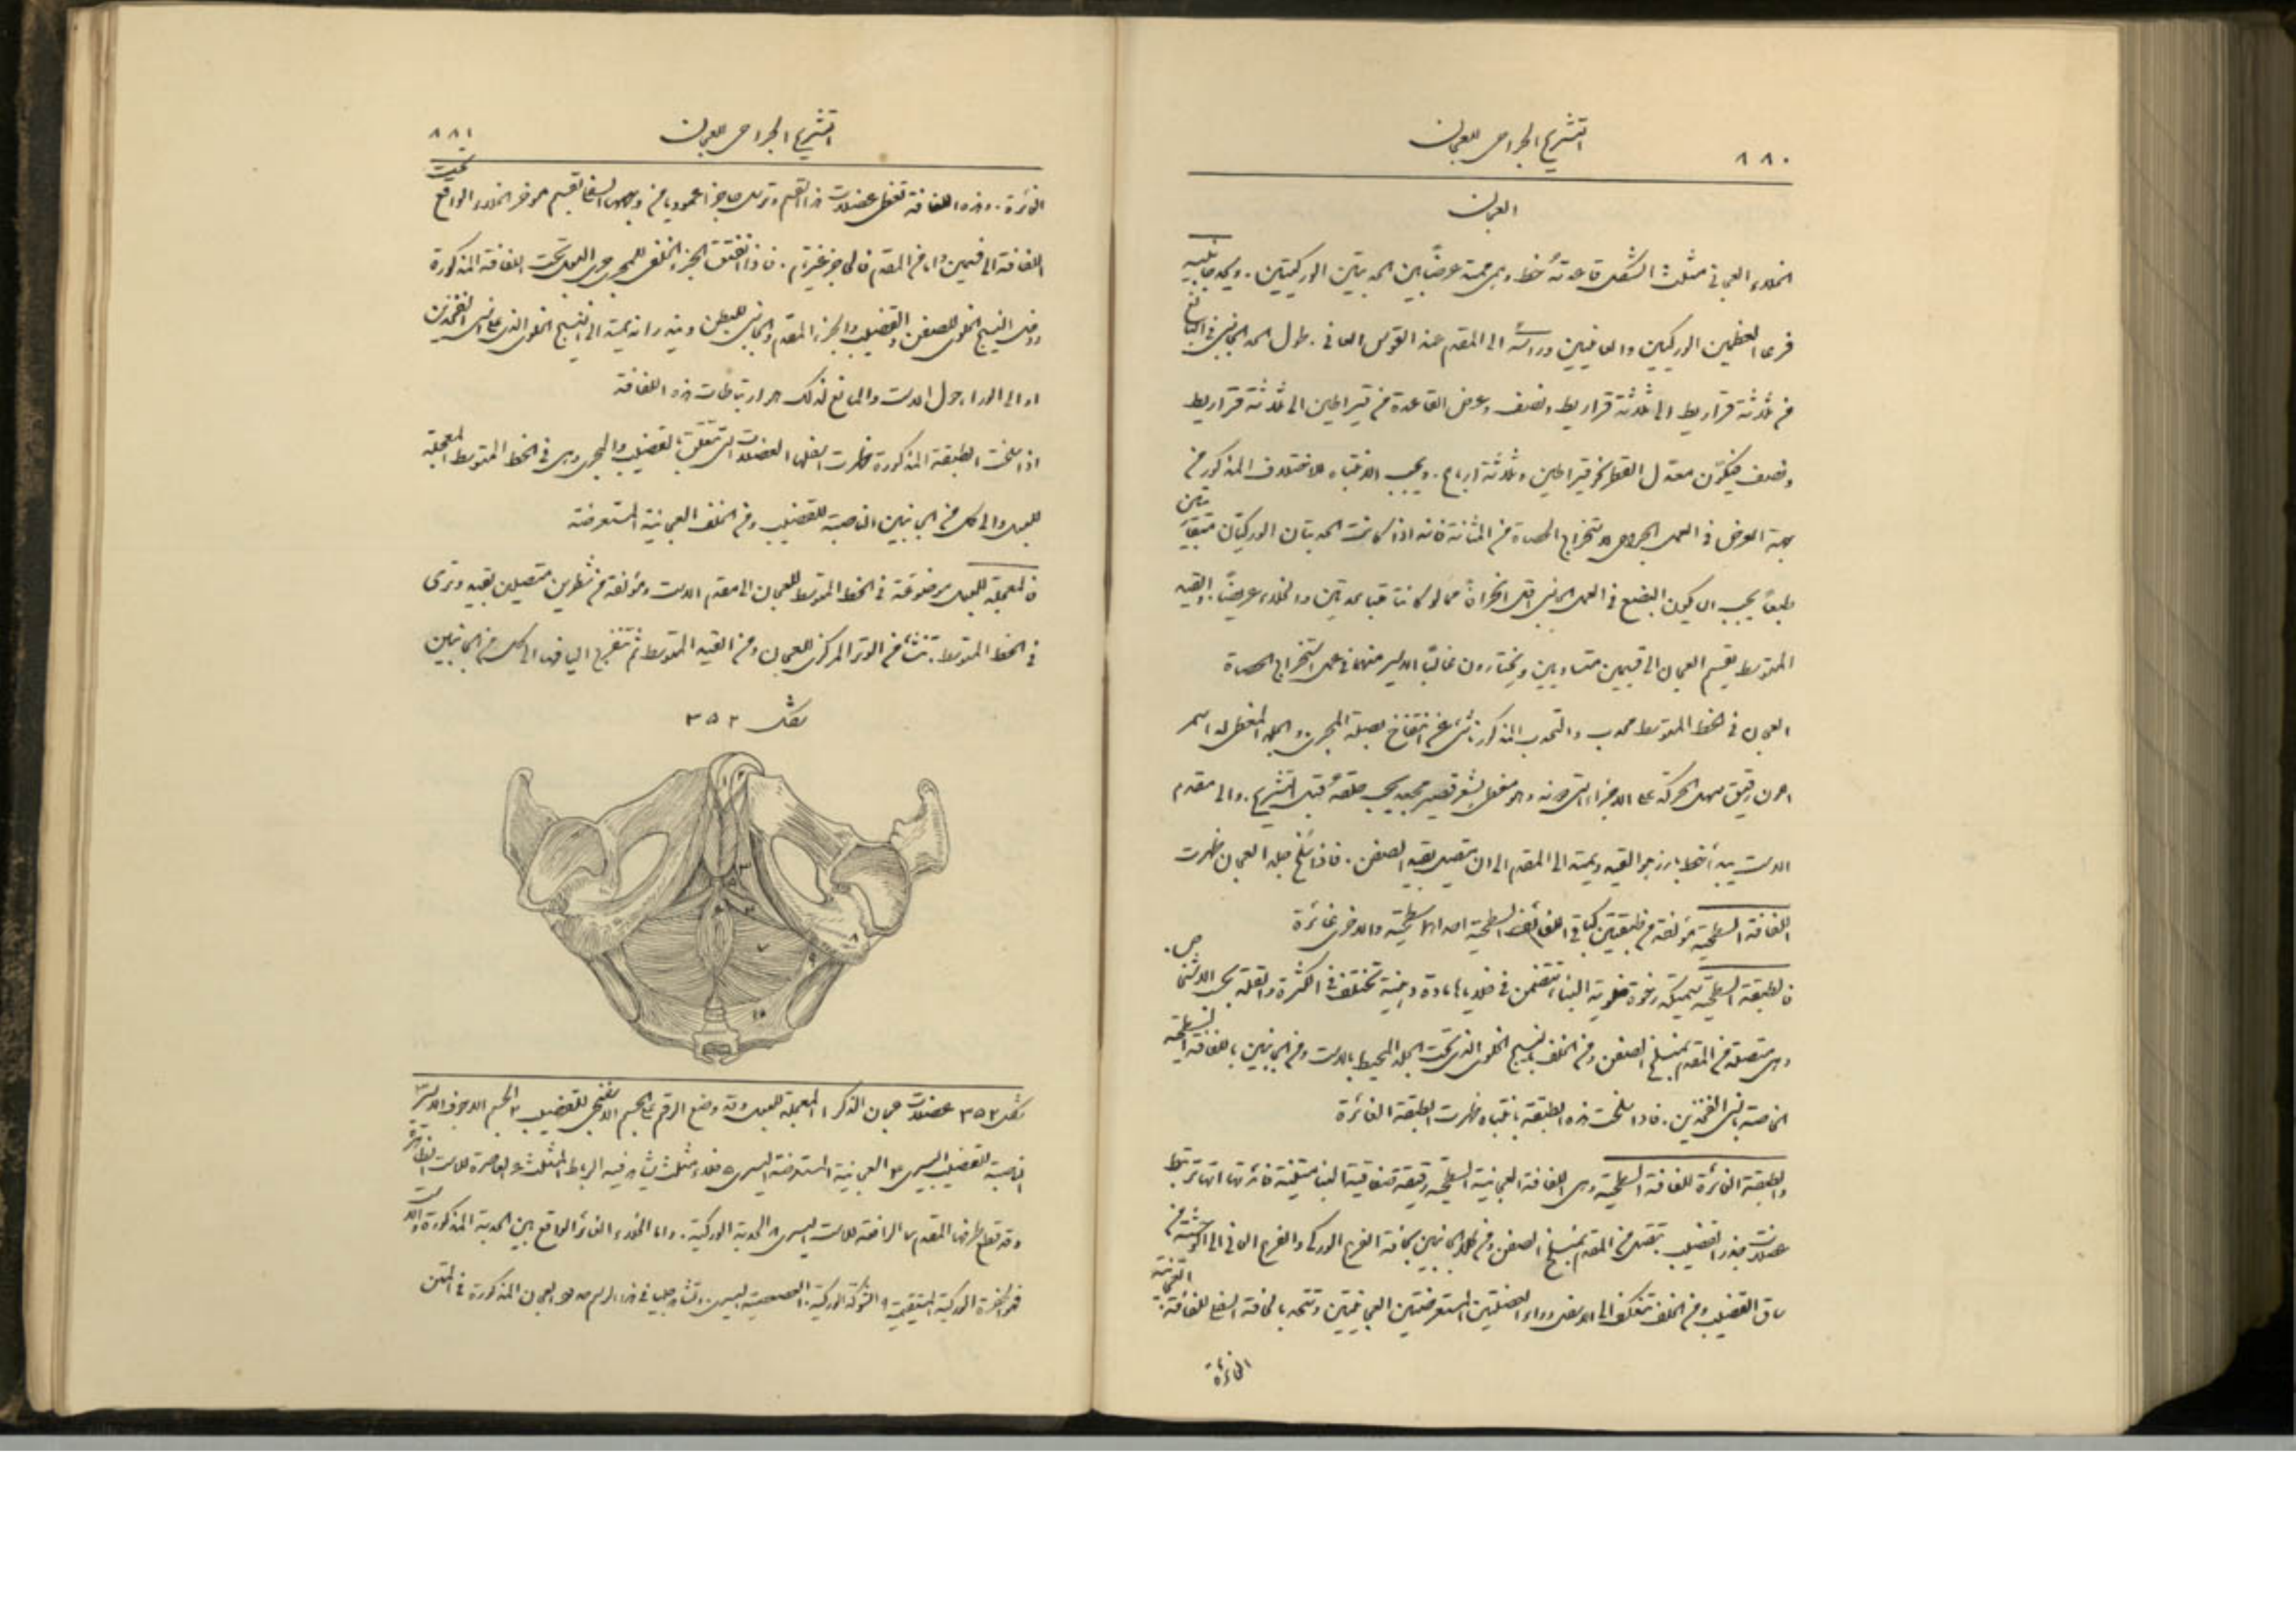 ٨٨٠
التشريح الجراحي للعجان
العجان
الخلاء العجاني مثلث الشكل قاعدته خط وهمي ممتد عرضًا بين الحدبتين الوركيتين. ويحد جانبيه
فرعا العظمين الوركيين والعانيين ورأسه الى المقدم عند القوس العاني. طول الحد الجانبي في البالغ
من ثلاثة قراريط الى ثلاثة قراريط ونصف وعرض القاعدة من قيراطين الى ثلاثة قراريط
ونصف فيكون معدل القطر نحو قيراطين وثلاثة ارباع. ويجب الانتباه للاختلاف المذكور من
جهة العرض في العمل الجراحي لاستخراج الحصاة من المثانة فانه اذا كانت الحدبتان الوركيتان متقاربتين
طبعًا يجب ان يكون البضع في العمل الجانبي اقل انحرافًا مما لو كانتا متباعدتين والخلاء عريضًا. القيد
المتوسط يقسم العجان الى قسمين متساويين ويختارون غالبًا الايسر منهما في عمل استخراج الحصاة
العجان في الخط المتوسط محدب والتحدب المذكور ناشئ عن انتفاخ بصلة المجرى. والجلد المغطي له اسمر
اللون رقيق سهل الحركة على الاجزاء التي دونه وهو مغطى بشعر قصير جعد يجب حلقه قبل التشريح. والى مقدم
الاست يبدأ خط بارز هو القيد ويمتد الى المقدم الى ان يتصل بقيد الصفن. فاذا سلخ جلد العجان ظهرت
اللفافة السطحية مؤلفة من طبقتين كباقي اللفائف السطحية احداهما سطحية والاخرى غائرة
فالطبقة السطحية سميكة رخوة خلوية البناء تتضمن في خلاياها مادة دهنية تختلف في الكثرة والقلة بحسب الاشخاص.
وهي متصلة في المقدم بمنسلخ الصفن ومن الخلف بالنسيج الخلوي الذي تحت الجلد المحيط بالاست ومن الجانبين باللفافة السطحية
الخاصة بانسي الفخذين. فاذا سلخت هذه الطبقة بانتباه ظهرت الطبقة الغائرة
والطبقة الغائرة للفافة السطحية وهي اللفافة العجانية السطحية رقيقة صفاقية البناء متينة فائدتها انها تربط
عضلات جذر القضيب. تتصل من المقدم بمنسلخ الصفن ومن الجانبين بحافة الفرع الوركي والفرع العاني الى الوحشية من
ساق القضيب ومن الخلف تنعكف الى الاسفل وراء العضلتين المستعرضتين العجانيتين وتتحد بالحافة السفلى للفافة العجانية
الغائرة
التشريح الجراحي للعجان
٨٨١
الغائرة. وهذه اللفافة تغطي عضلات هذا القسم وترسل حاجزًا عموديا من وجهها السفلي يقسم مؤخر الخلاء الواقع تحت
اللفافة الى قسمين واما في المقدم فالحاجز غير تام. فاذا انفتق الجزء الخلفي للمجرى جرى البول تحت اللفافة المذكورة
ودخل النسيج الخلوي للصفن والقضيب والجزء المقدم والجانبي للبطن ويندر انه يمتد الى النسيج الخلوي الذي على انسي الفخذين
او الى الوراء حول الاست والمانع لذلك هو ارتباطات هذه اللفافة
اذا سلخت الطبقة المذكورة ظهرت اسفلها العضلات التي تتعلق بالقضيب والمجرى وهي في الخط المتوسط المعجلة
للبول والى كل من الجانبين الناصبة للقضيب ومن الخلف العجانية المستعرضة
فالمعجلة للبول موضوعة في الخط المتوسط للعجان الى مقدم الاست ومؤلفة من شطرين متصلين بقيد وتري
في الخط المتوسط. تنشأ من الوتر المركزي للعجان ومن القيد المتوسط ثم تنفرج اليافها الى كل من الجانبين
شكل ٣٥٢
٣
٥
٧
٨
٩
١٠
شكل ٣٥٢ عضلات عجان الذكر ١ المعجلة للبول وقد وضع الرقم على الجسم الاسفنجي للقضيب ٢ الجسم الاجوف الايسر ٣
الناصبة للقضيب اليسرى ٤ العجانية المستعرضة اليسرى ٥ خلاء مثلث يشاهد فيه الرباط المثلث ٦ العاصرة للاست الظاهرة
وقد قطع طرفها المقدم ٧ الرافعة للاست اليسرى ٨ الحدبة الوركية. واما الخلاء الغائر الواقع بين الحدبة المذكورة والاست
فهو الحفرة الوركية المستقيمية ٩ الشوكة الوركية. العصعصية اليسرى. وتشاهد جليا في هذا الرسم حدود العجان المذكورة في المتن